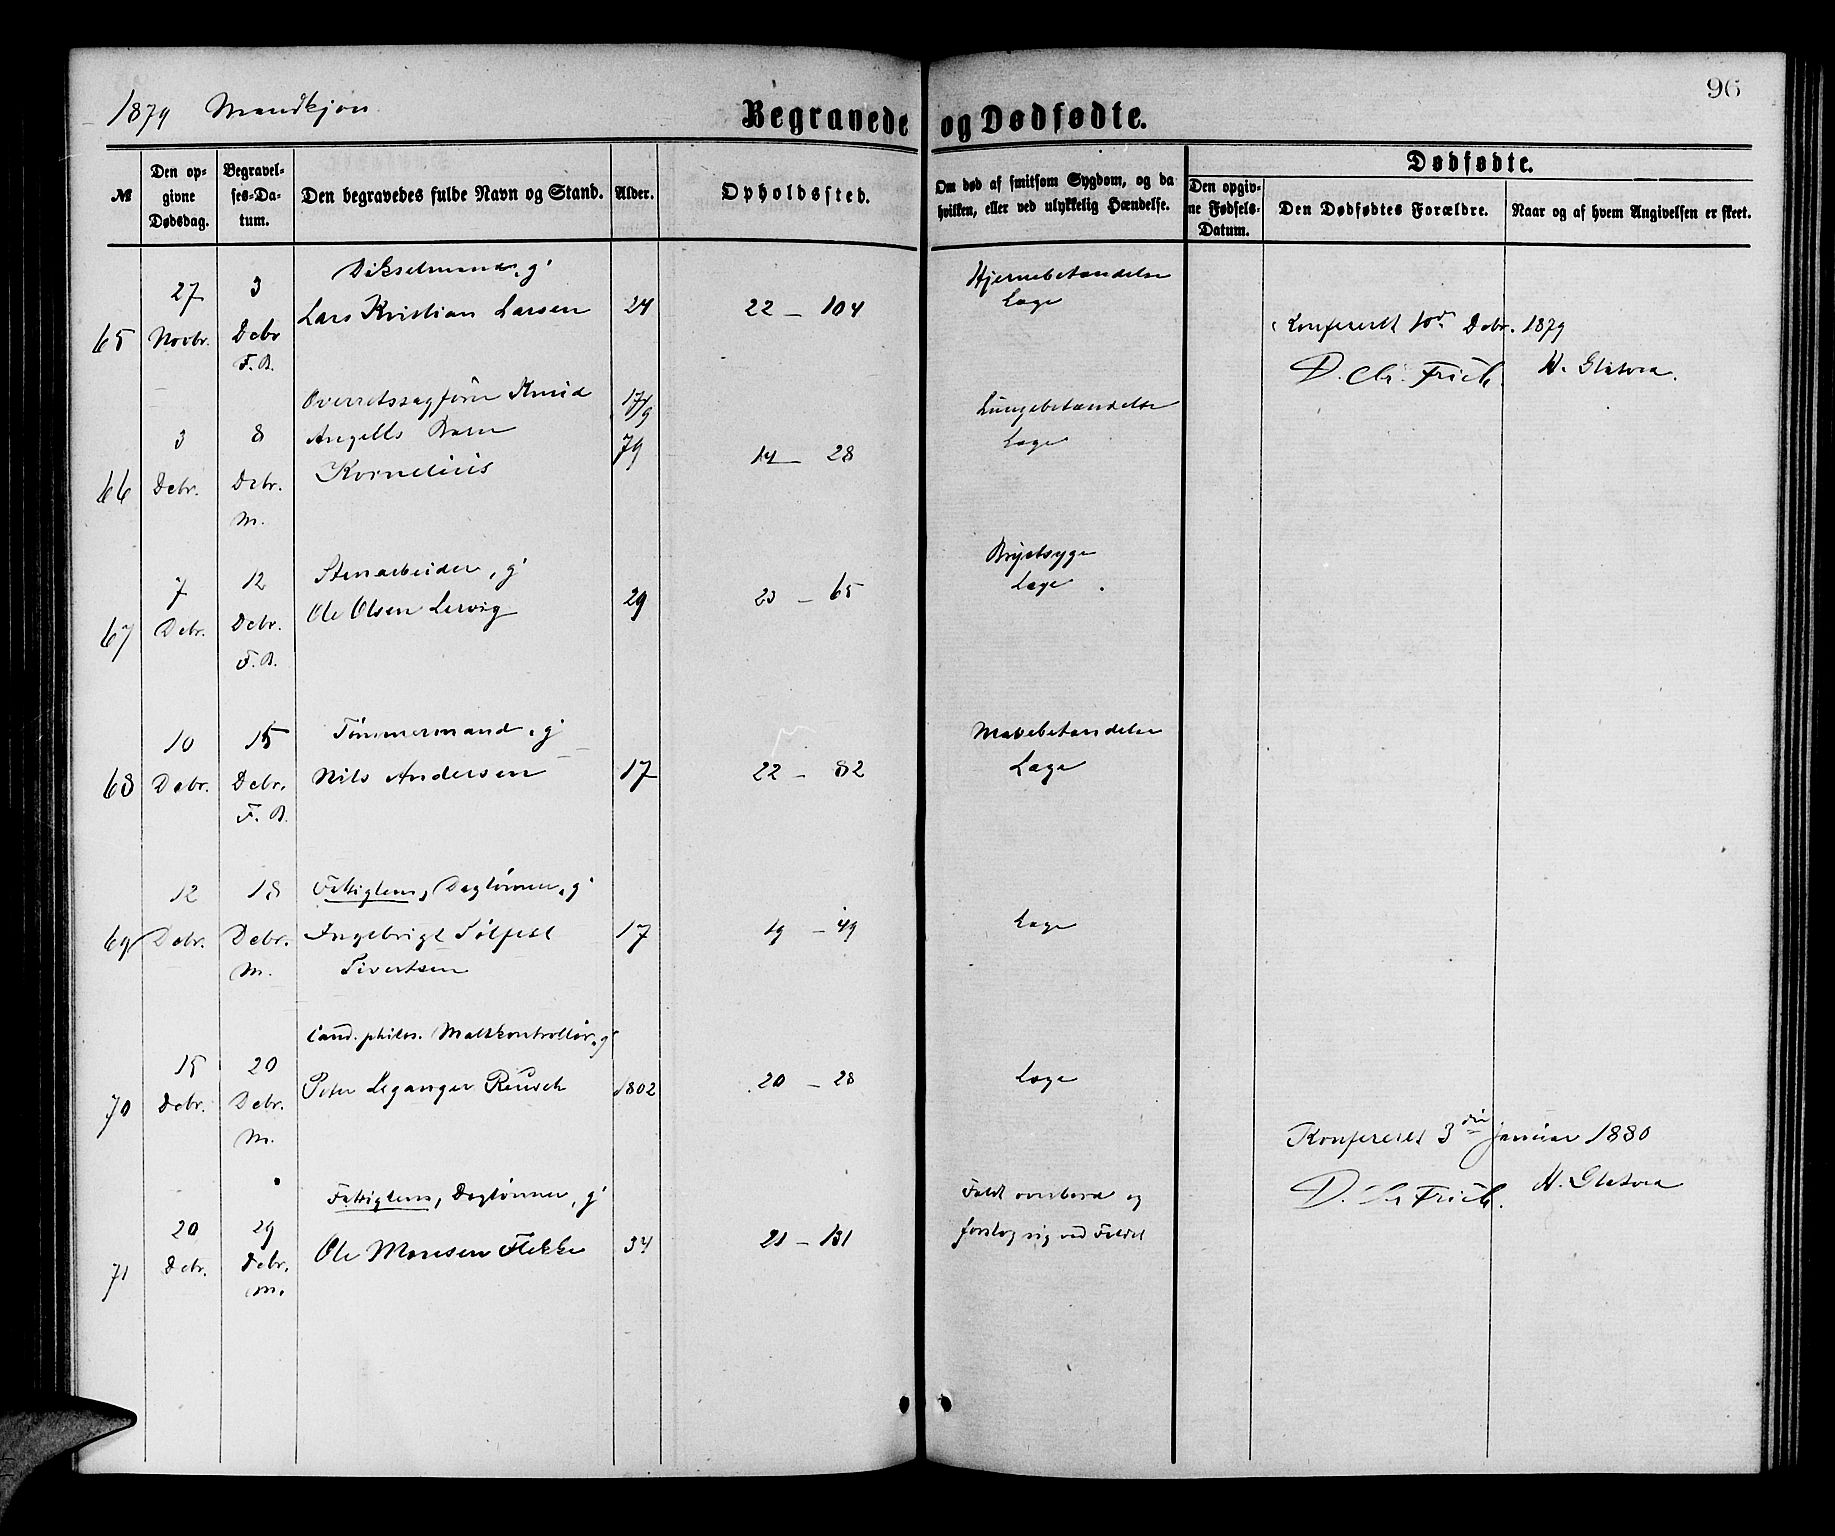 1879 Mandkjøn
Begravede og Dødfødte.
96
№
Den opgivne Dødsdag.
Begravelses-Datum.
Den begravedes fulde Navn og Stand.
Alder.
Opholdssted.
Om død af smitsom Sygdom, og da hvilken, eller ved ulykkelig Hændelse.
Dødfødte.
Den opgivne Fødsels-Datum.
Den Dødfødtes Forældre.
Naar og af hvem Angivelsen er skeet.
65
27 Novbr.
3 Debr F. B.
Dikselmand, g'
Lars Kristian Larsen
24
22 – 104
Hjernebetændelse
Læge
Konfereret 10d Debr. 1879
D. Chr. Frich.
H. Glatved.
66
3 Debr.
8 Debr. M.
Overretssagfører Knud
Angells Barn
Kornelius
17/9
79
14 – 28
Lungebetændelse
Læge
67
7 Debr.
12 Debr. F. B.
Stenarbeider, g'
Ole Olsen Lervig
29
23 – 65
Brystsyge
Læge
68
10 Debr.
15 Debr. F. B.
Tømmermand, g'
Nils Andersen
17
22 – 82
Mavebetændelse
Læge
69
12 Debr.
18 Debr. M.
Fattiglem, Daglønner, g'
Ingebrigt Tølfest
Sivertsen
17
19 – 49
Læge
70
15 Debr.
20 Debr. M.
Cand. philos. Maltkontrollør, g'
Peter Leganger Reusch
1802
20 – 28
Læge
Konfereret 3die Januar 1880
D. Chr Frich.
H. Glatved
71
20 Debr.
29 Debr. M.
Fattiglem, Daglønner, g'
Ole Monsen Flekke
34
21 – 131
Faldt overbord og
forslog sig ved Faldet